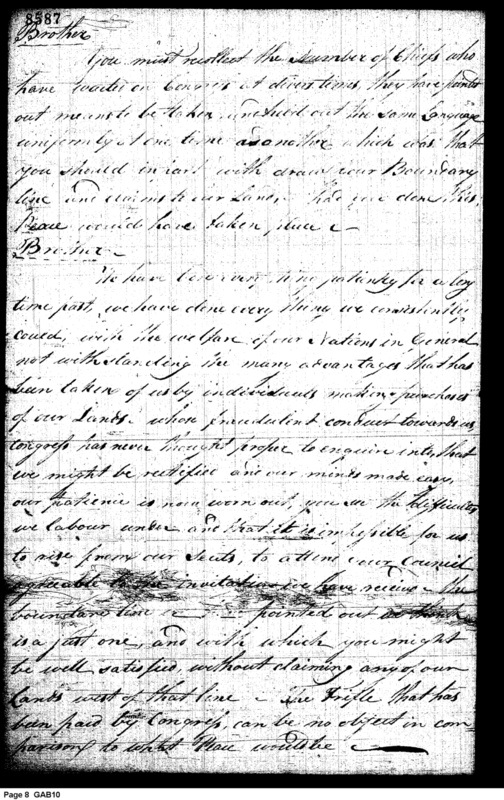 8587
Brother
You must recollect the Number of Chiefs who
have waited on Congress at divers times, they have pointed
out means to be taken, and held out the same language
uniformly at one time as another, which was that
you should in part with draw your Boundary
line and claims to our Lands. Had you done this,
Peace would have taken place —
Brother —
We have been very patiently for a long
time past, we have done every thing we consistently
could, with the welfare of our Nations in General
not with standing the many advantages that has
been taken of us by individuals making purchases
of our Lands. whose fraudulent conduct towards us
Congress has never thought proper to enquire into, that
we might be rectified and our minds made easy,
our patience is now worn out, you see the difficulties
we labour under and that it is impossible for us
to rise from our Seats, to attend your Council
agreeable to the invitation we have received the
boundary line pointed out we think
is a just one, and with which you might
be well satisfied, without claiming any of our
Lands west of that line — The trifle that has
been paid by Congress, can be no object in com-
parison to what Peace would be —
Page 8 GAB10